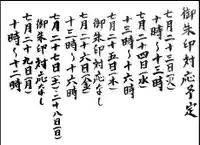 御朱印対応予定
七月二十三日(火)
十時〜十三時
七月二十四日(水)
十三時〜十六時
七月二十五日(木)
御朱印対応なし
七月二十六日(金)
十三時〜十六時
七月二十七日(土)二十八日(日)
御朱印対応なし
七月二十九日(月)
十時〜十二時